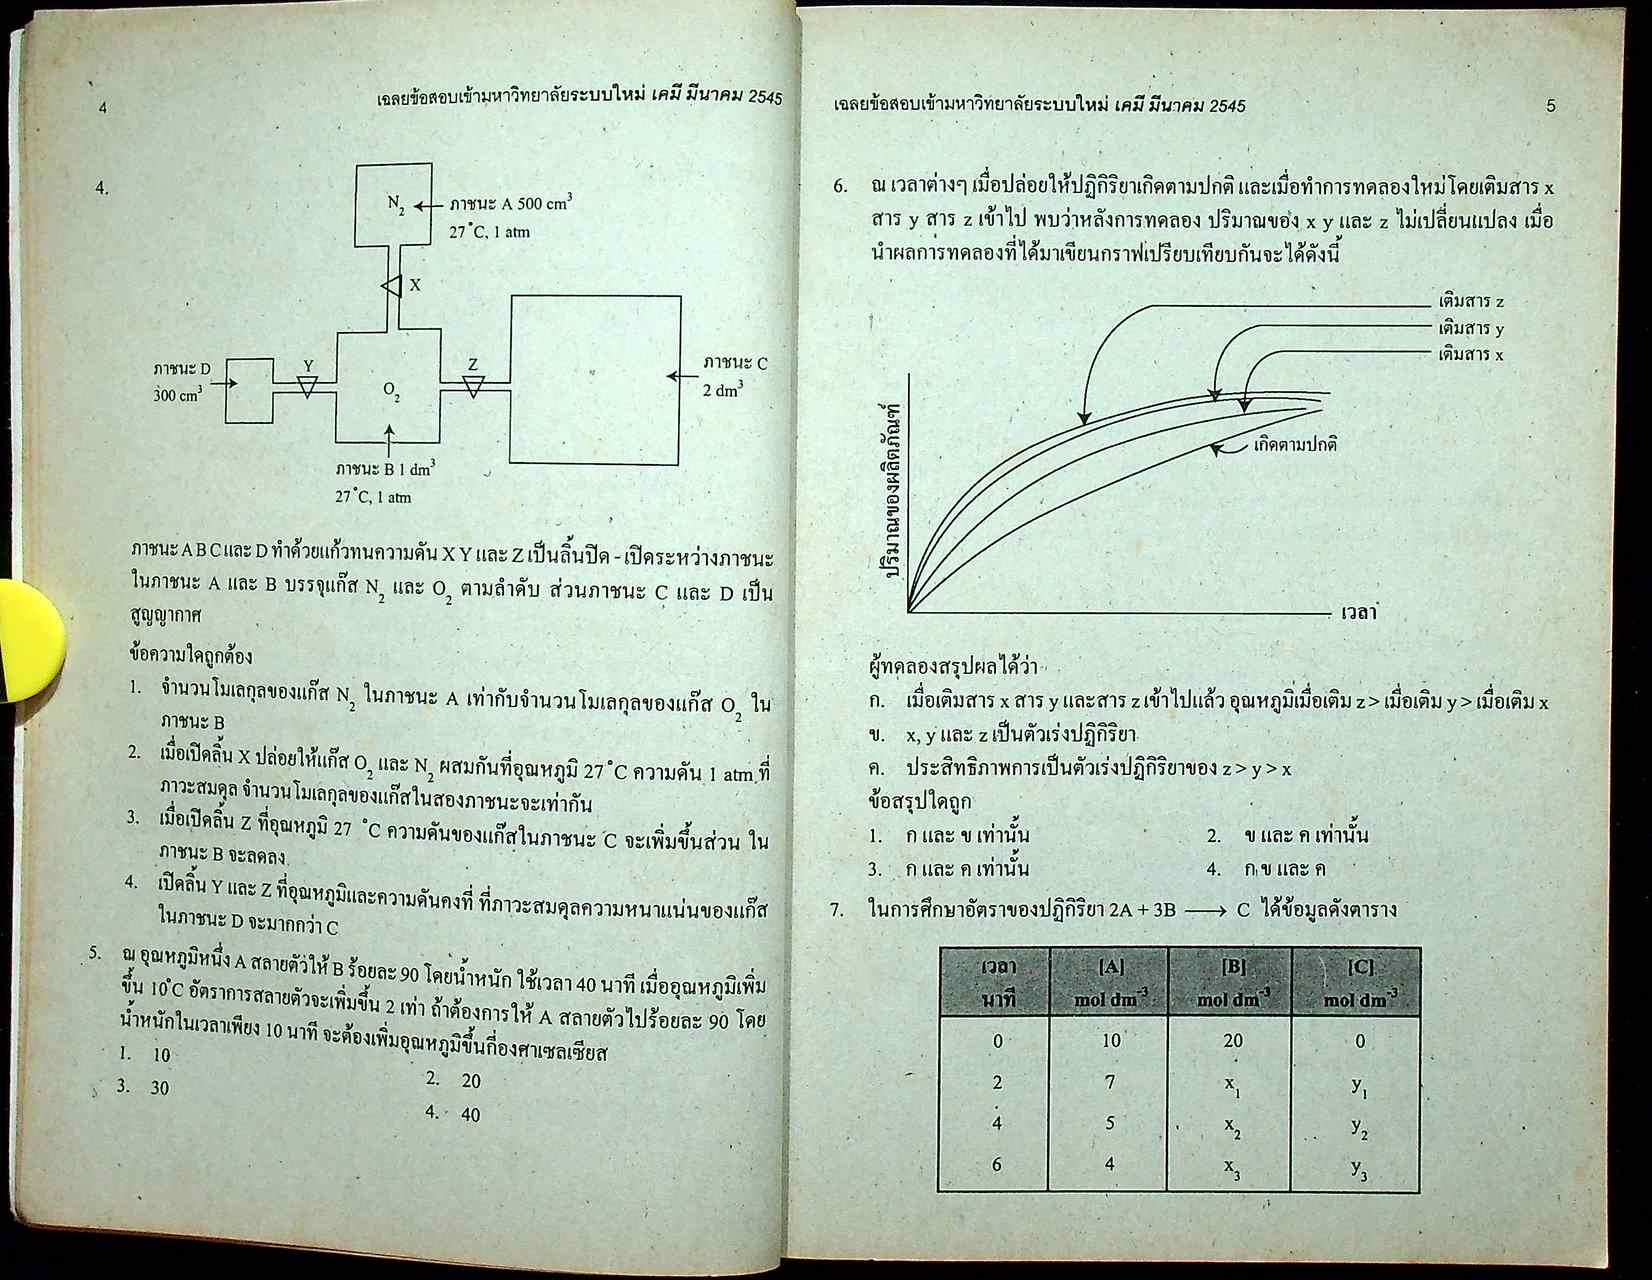 4
เฉลยข้อสอบเข้ามหาวิทยาลัยระบบใหม่ เคมี มีนาคม 2545
4.
N2
ภาชนะ A 500 cm3
27 ˚C, 1 atm
X
ภาชนะ D
300 cm3
Y
O2
Z
ภาชนะ C
2 dm3
ภาชนะ B 1 dm3
27 ˚C, 1 atm
ภาชนะ A B C และ D ทำด้วยแก้วทนความดัน X Y และ Z เป็นลิ้นปิด - เปิดระหว่างภาชนะ
ในภาชนะ A และ B บรรจุแก๊ส N2 และ O2 ตามลำดับ ส่วนภาชนะ C และ D เป็น
สูญญากาศ
ข้อความใดถูกต้อง
1. จำนวนโมเลกุลของแก๊ส N2 ในภาชนะ A เท่ากับจำนวนโมเลกุลของแก๊ส O2 ใน
ภาชนะ B
2. เมื่อเปิดลิ้น X ปล่อยให้แก๊ส O2 และ N2 ผสมกันที่อุณหภูมิ 27 ˚C ความดัน 1 atm ที่
ภาวะสมดุล จำนวนโมเลกุลของแก๊สในสองภาชนะจะเท่ากัน
3. เมื่อเปิดลิ้น Z ที่อุณหภูมิ 27 ˚C ความดันของแก๊สในภาชนะ C จะเพิ่มขึ้นส่วน ใน
ภาชนะ B จะลดลง
4. เปิดลิ้น Y และ Z ที่อุณหภูมิและความดันคงที่ ที่ภาวะสมดุลความหนาแน่นของแก๊ส
ในภาชนะ D จะมากกว่า C
5. ณ อุณหภูมิหนึ่ง A สลายตัวให้ B ร้อยละ 90 โดยน้ำหนัก ใช้เวลา 40 นาที เมื่ออุณหภูมิเพิ่ม
ขึ้น 10˚C อัตราการสลายตัวจะเพิ่มขึ้น 2 เท่า ถ้าต้องการให้ A สลายตัวไปร้อยละ 90 โดย
น้ำหนักในเวลาเพียง 10 นาที จะต้องเพิ่มอุณหภูมิขึ้นกี่องศาเซลเซียส
1. 10
2. 20
3. 30
4. 40
เฉลยข้อสอบเข้ามหาวิทยาลัยระบบใหม่ เคมี มีนาคม 2545
5
6. ณ เวลาต่างๆ เมื่อปล่อยให้ปฏิกิริยาเกิดตามปกติ และเมื่อทำการทดลองใหม่โดยเติมสาร x
สาร y สาร z เข้าไป พบว่าหลังการทดลอง ปริมาณของ x y และ z ไม่เปลี่ยนแปลง เมื่อ
นำผลการทดลองที่ได้มาเขียนกราฟเปรียบเทียบกันจะได้ดังนี้
เติมสาร z
เติมสาร y
เติมสาร x
เกิดตามปกติ
ปริมาณของผลิตภัณฑ์
เวลา
ผู้ทดลองสรุปผลได้ว่า
ก. เมื่อเติมสาร x สาร y และสาร z เข้าไปแล้ว อุณหภูมิเมื่อเติม z > เมื่อเติม y > เมื่อเติม x
ข. x, y และ z เป็นตัวเร่งปฏิกิริยา
ค. ประสิทธิภาพการเป็นตัวเร่งปฏิกิริยาของ z > y > x
ข้อสรุปใดถูก
1. ก และ ข เท่านั้น 2. ข และ ค เท่านั้น
3. ก และ ค เท่านั้น 4. ก ข และ ค
7. ในการศึกษาอัตราของปฏิกิริยา 2A + 3B ⟶ C ได้ข้อมูลดังตาราง
เวลา [A] [B] [C]
นาที mol dm-3 mol dm-3 mol dm-3
0 10 20 0
2 7 x1 y1
4 5 x2 y2
6 4 x3 y3